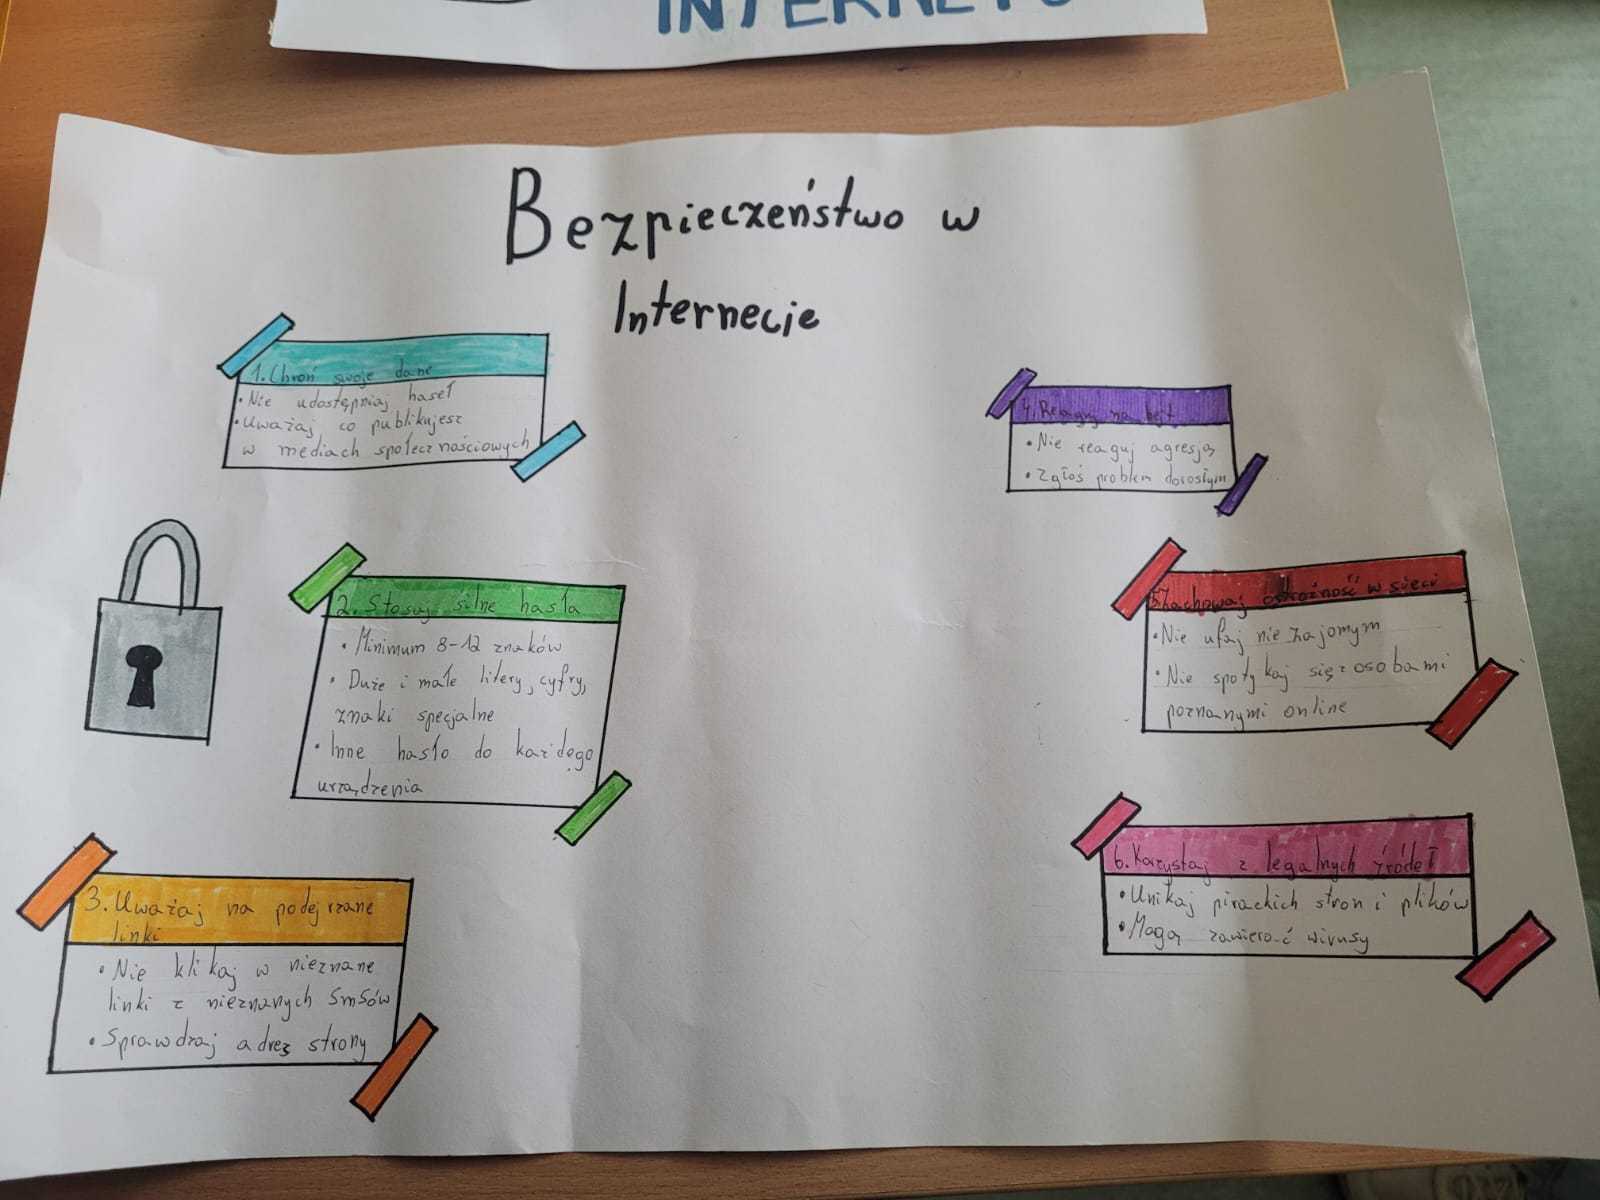 INTERNETU
Bezpieczeństwo w
Internecie
1. Chroń swoje dane
• Nie udostępniaj haseł
• Uważaj co publikujesz
w mediach społecznościowych
2. Stosuj silne hasła
• Minimum 8-12 znaków
• Duże i małe litery, cyfry,
znaki specjalne
• Inne hasło do każdego
urządzenia
3. Uważaj na podejrzane
linki
• Nie klikaj w nieznane
linki z nieznanych SmSów
• Sprawdzaj adres strony
4. Reaguj na hejt
• Nie reaguj agresją
• Zgłoś problem dorosłym
5. Zachowaj ostrożność w sieci
• Nie ufaj nieznajomym
• Nie spotykaj się z osobami
poznanymi online
6. Korzystaj z legalnych źródeł
• Unikaj pirackich stron i plików
• Mogą zawierać wirusy